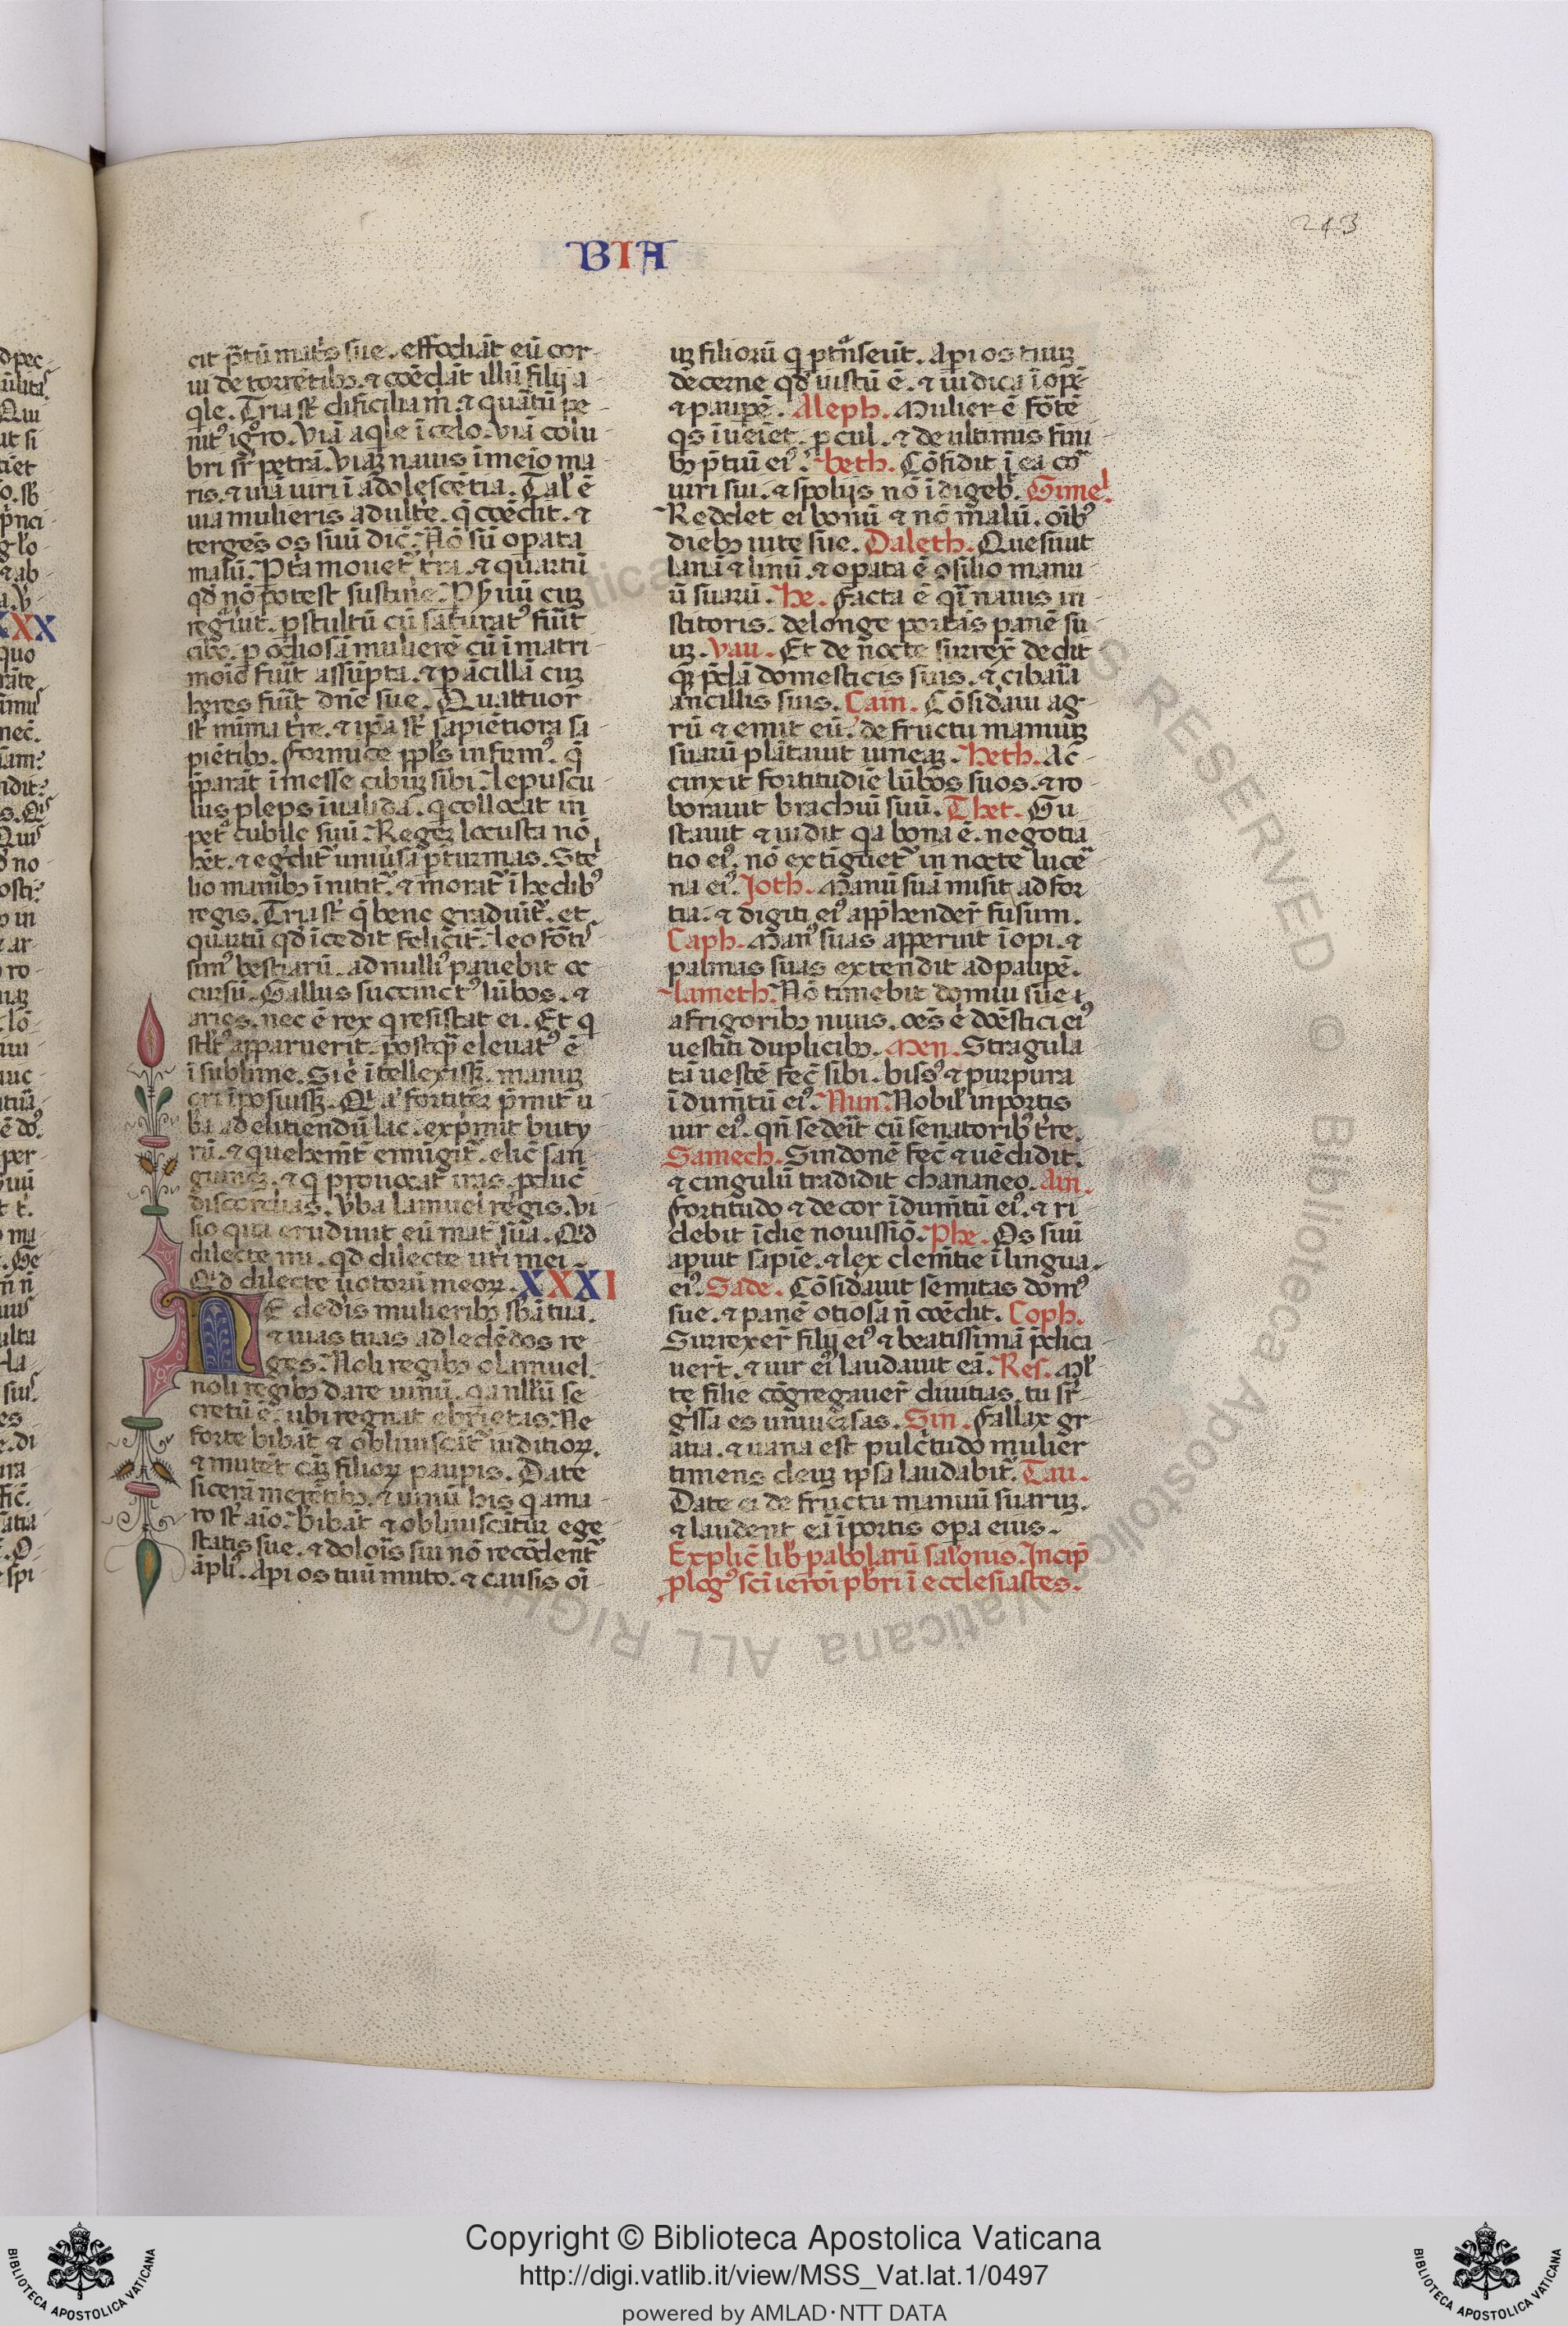 BIA
243
cit p̄tū mat̄s sue. effodiāt eū cor-
ui de torrētibꝫ. ⁊ coēdāt illū filij a-
qle. Tria st̄ dificilia m̄. ⁊ quātū pe-
nitꝰ igͦro. Viā aqle ī celo. viā colu-
bri sr̄ petrā. Viaꝫ nauis ī meio ma-
ris. ⁊ uiā uiri ī adolescētia. Tal̕ ē
uia mulieris adult̄e. q̄ coēdit. ⁊
tergēs os suū dic̄. Nō sū opata
malū. P̄ t̄a mouet̄ t̄ra. ⁊ quartū
qd̄ nō potest sustine. P̄ ꝫuū cuꝫ
regͣuit. p stultū cū saturatꝰ fuīt
cibo. p odiosā mulierē cū ī matri-
moīo fuīt assūpta. ⁊ p ācillā cuꝫ
heres fuīt dn̄e sue. Quattuor
st̄ mīma t̄re. ⁊ ip̄a st̄ sapiētiora sa
piētibꝫ. formice ppl̄s infirmꝰ. q̄
p̄parāt ī messe cibuꝫ sibi. lepuscu
lus pleps īualida. q̄ collocat in
petͣ cubile suū. Regeꝫ locusta nō
hēt. ⁊ eḡdit̄ uniūsa p̄ turmas. Ste
lio manibꝫ īnitit̄. ⁊ morat̄ ī hedibꝰ
regis. Tria st̄ q̄ bene graduīt̄. et
quartū qd̄ īcedit feliciť. leo fōti
simꝰ bestiarū. ad nulliꝰ pauebit oc
cursū. Gallus succinctꝰ lūbos. ⁊
aries. nec ē rex q resistat ei. Et q
stl̄tꝰ apparuerit. postqꝫ eleuatꝰ ē
ī sublime. Si ē ītellexissꝫ. manuꝫ
ori īposuissꝫ. Qi a᷑ fortiteꝫ p̄mit u
b̄a ad elitiendū lac. exp̄mit buty
rū. ⁊ que hem̄t emūgit̄. elic̄ san
guineꝫ. ⁊ q prouocat iras. p̄duc̄
discordias. V̄ba lamuel regis. Vi
sio qua erudiuit eū mat̄ sua. Qd̄
dilecte mi. qd̄ dilecte ut̄i mei.
Qd̄ dilecte uotorū meoꝝ. XXXI
NE dedis mulieribꝫ sb̄ā tuā.
⁊ uias tuas ad ledēdos re
ges. Noli regibꝫ o lamuel.
noli regibꝫ dare uinū. qa nullū se
cretū ē. ubi regnat ebrietas. Ne
forte bibāt ⁊ obliuiscāt̄ iuditioꝝ.
⁊ mutēt cāꝫ filioꝝ paupis. Date
sicerā merētibꝫ. ⁊ uinū his q ama
ro st̄ aīo. Bibāt ⁊ obliuiscātur ege
statis sue. ⁊ doloīs sui nō recōdent̄
āpliꝰ. Api os tuū muto. ⁊ causis oī
uꝫ filiorū q ptn̄seūt. Api os tuuꝫ
decerne qd̄ iustū ē. ⁊ iudica īopē
⁊ paupē. Aleph. Mulierē fōtē
qs īueīet. pcul. ⁊ de ultimis fini
bꝫ p̄tiū eiꝰ. beth. Cōfidit ī ea coͬ
uiri sui. ⁊ spolijs nō īdigeb̄. Gimel
Reddet ei bonū ⁊ nō malū. oībꝰ
diebꝫ uite sue. Daleth. Quesiuit
lanā ⁊ linū. ⁊ opata ē ꝯsilio manu
ū suarū. he. Facta ē qͣi nauis in
stitoris. de longe portās panē su
uꝫ. Vau. Et de nocte surrex̄ dedit
qꝫ p̄dā domesticis suis. ⁊ cibaīa
ancillis suis. Cain. Cōsid̄auit ag
rū ⁊ emit eū. de fructu manuuꝫ
suarū plātauit uineaꝫ. Heth. Ac̄
cinxit fortitudīe lūbos suos. ⁊ ro
borauit brachiū suū. Thet. Gu
stauit ⁊ uidit qa bona ē. negotia
tio eiꝰ. nō extīguet̄ in nocte luce
na eiꝰ. Joth. Manū suā misit ad for
tia. ⁊ digiti eiꝰ app̄hender̄ fusum.
Caph. Manꝰ suas apperuit īopi. ⁊
palmas suas extendit ad paupē.
lameth. Nō timebit domui sue
a frigoribꝫ niuis. oēs ē. doēstici eiꝰ
uestiti duplicibꝫ. Men. Stragula
tā uestē fec̄ sibi. bissꝰ ⁊ purpura
īdum̄tū eiꝰ. Nun. Nobil̕ in portis
uir eiꝰ. qn̄ sedeīt cū senatoribꝰ t̄re.
Samech. Sindonē fec̄ ⁊ uēdidit.
⁊ cingulū tradidit chananeo. Ain.
Fortitudo ⁊ decor īdum̄tū eiꝰ. ⁊ ri
debit ī die nouissīo. Phe. Os suū
apuit sapīe. ⁊ lex clem̄tie ī lingua
eiꝰ. Sade. Cōsid̄auit semitas domꝰ
sue. ⁊ panē otiosa n̄ coēdit. Coph.
Surrexer̄ filij eiꝰ ⁊ beatissimā p̄dica
uer̄t. ⁊ uir eiꝰ laudauit eā. Res. Ml̕
te filie cōgregauer̄ diuitias. tu sr̄
gͣssa es uniuēsas. Sin. Fallax gr
atia. ⁊ uana est pulc̄tudo mulier
timens deuꝫ ipsa laudabit̄. Tau.
Date ei de fructu manuū suaruꝫ.
⁊ laudent eā ī portis opa eius.
Explic̄ lib̄ pabolarū sal̕onis. Incip̄
plogꝰ sc̄i ieroī pb̄ri ī ecclesiastes.
Copyright © Biblioteca Apostolica Vaticana
http://digi.vatlib.it/view/MSS_Vat.lat.1/0497
powered by AMLAD·NTT DATA
BIBLIOTECA APOSTOLICA VATICANA
BIBLIOTECA APOSTOLICA VATICANA